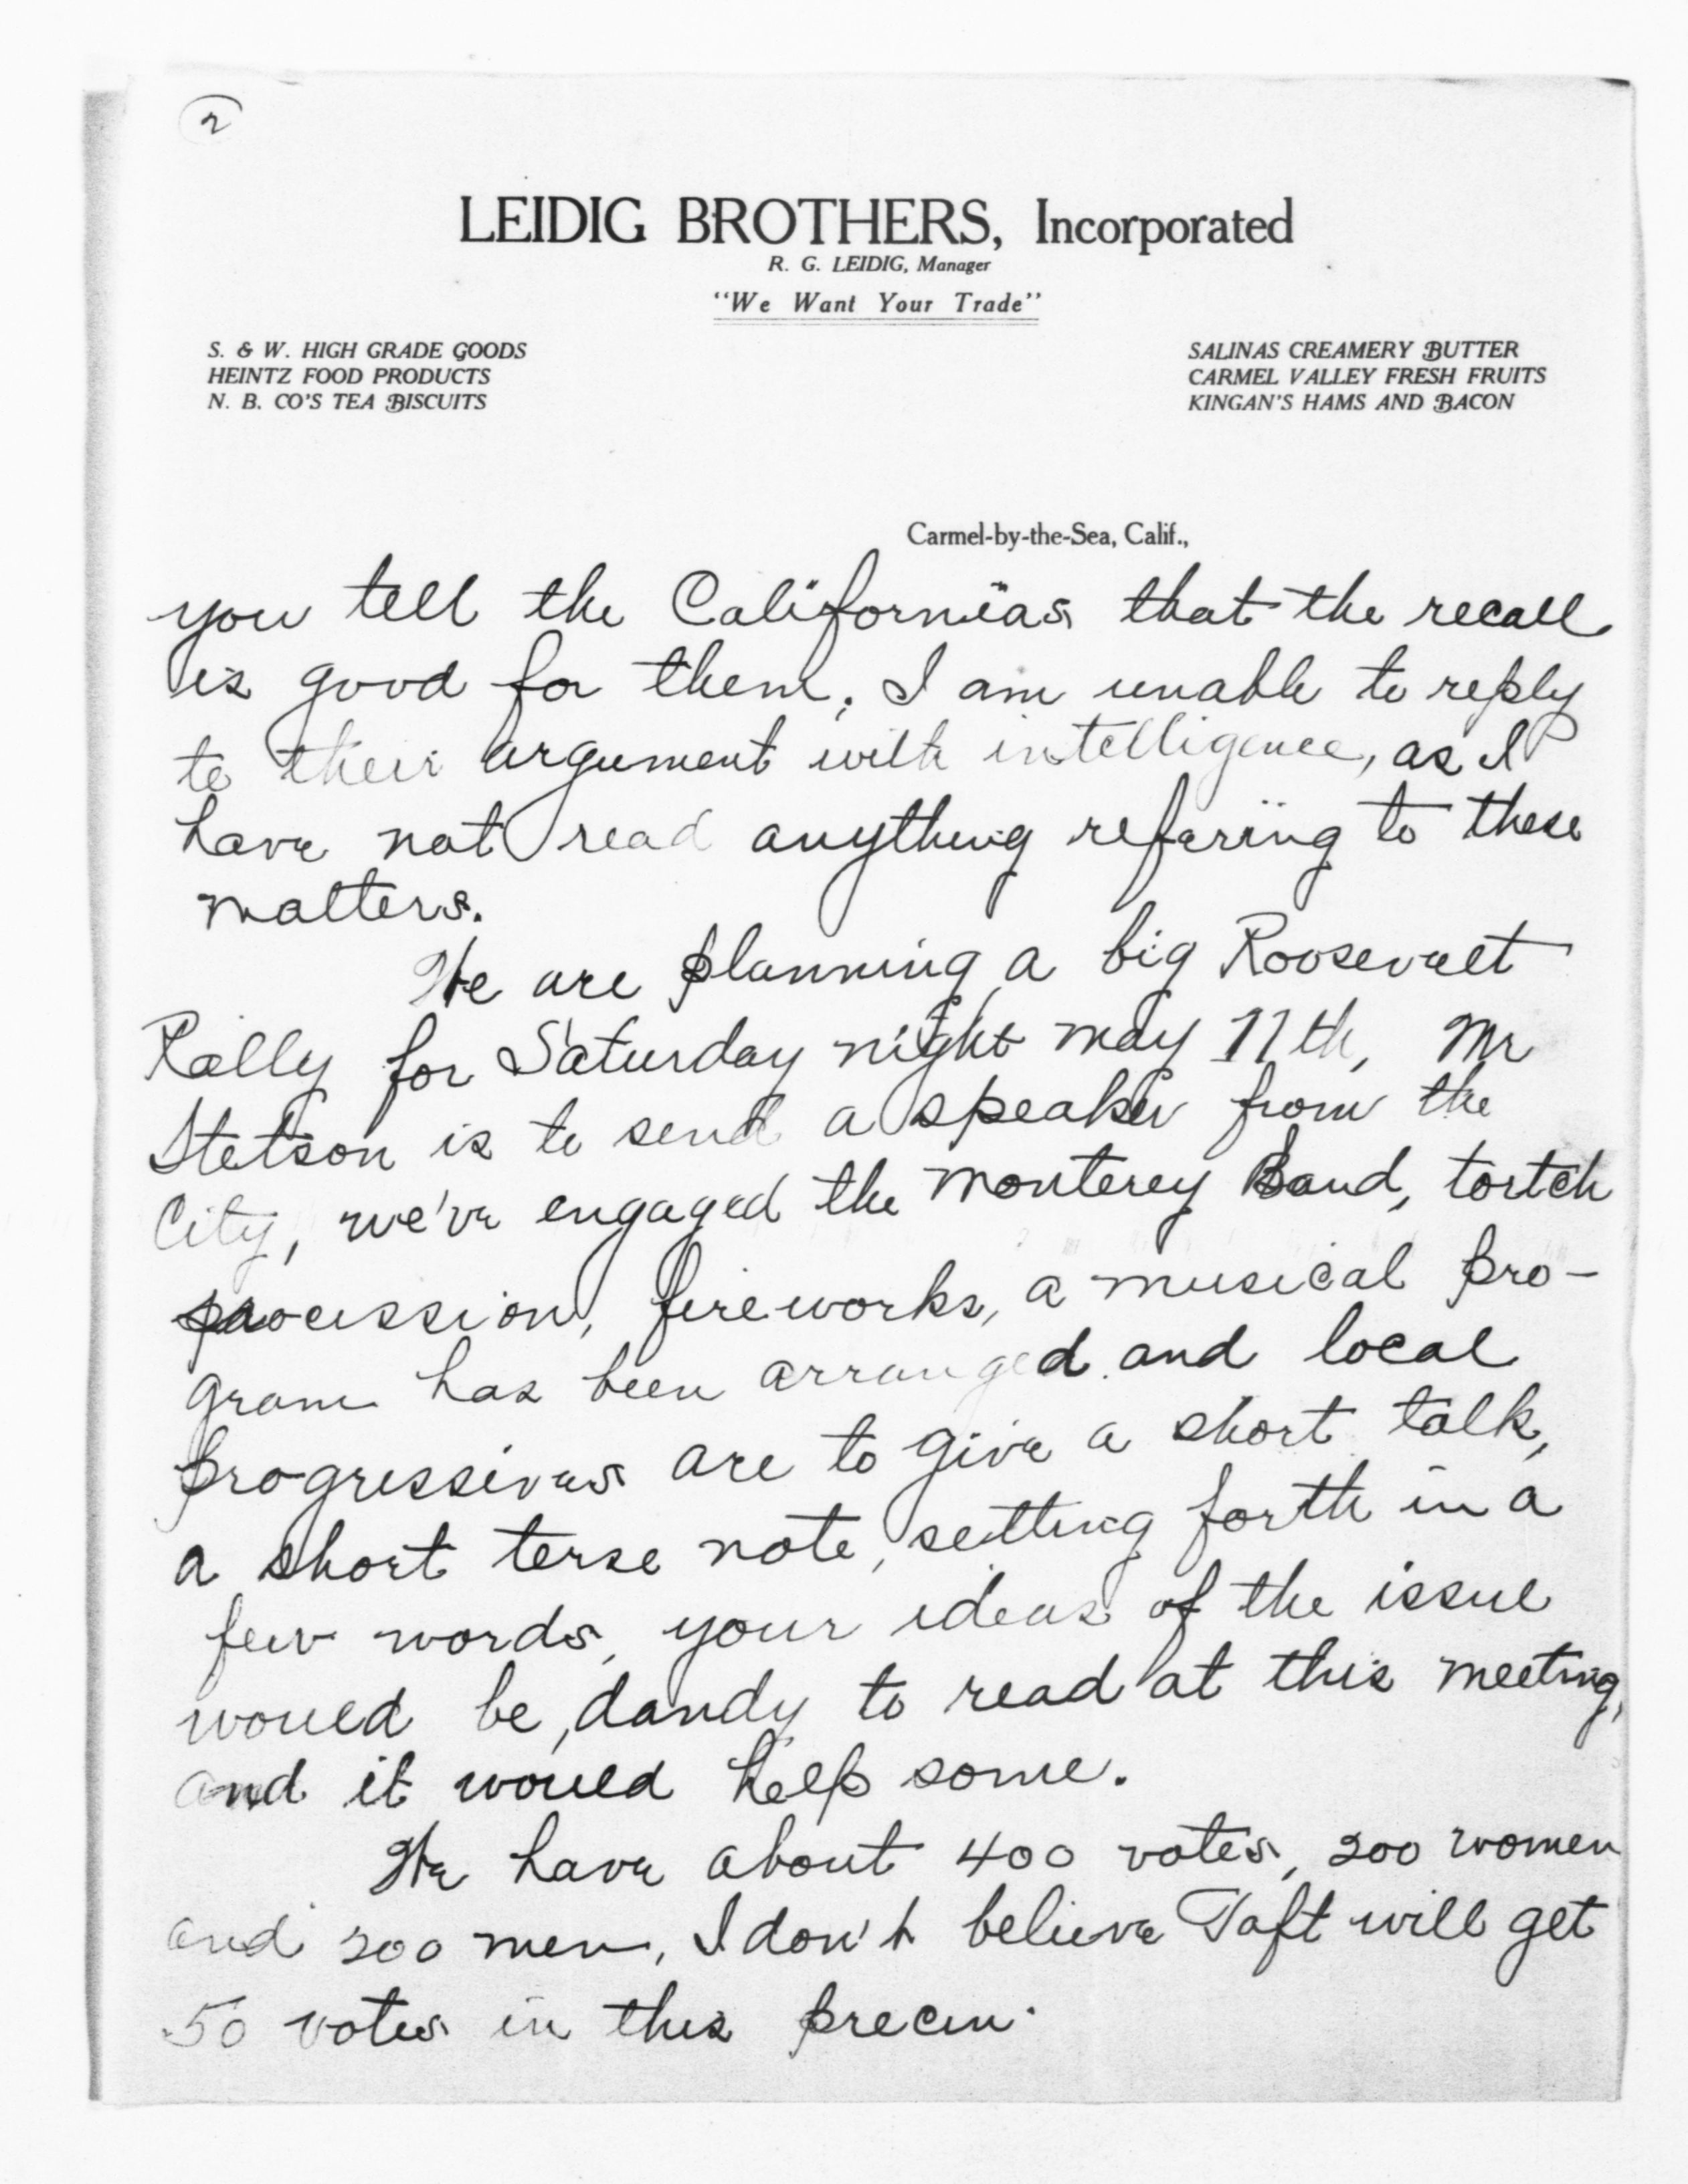 2
LEIDIG BROTHERS, Incorporated
R. G. LEIDIG, Manager
"We Want Your Trade"
S. & W. HIGH GRADE GOODS
HEINTZ FOOD PRODUCTS
N. B. CO'S TEA BISCUITS
SALINAS CREAMERY BUTTER
CARMEL VALLEY FRESH FRUITS
KINGAN'S HAMS AND BACON
Carmel-by-the-Sea, Calif.,
you tell the Californias that the recall
is good for them; I am unable to reply
to their argument with intelligence, as I
have not read anything refering to these
matters.
We are planning a big Roosevelt
Rally for Saturday night may 11th, Mr
Stetson is to send a speaker from the
City, we've engaged the Monterey Band, tortch
procession, fireworks, a musical pro-
gram has been arranged and local
progressives are to give a short talk,
a short terse note, setting forth in a
few words, your ideas of the issue
would be, dandy to read at this meeting,
and it would help some.
We have about 400 votes, 200 women
and 200 men, I don't believe Taft will get
50 votes in this precin